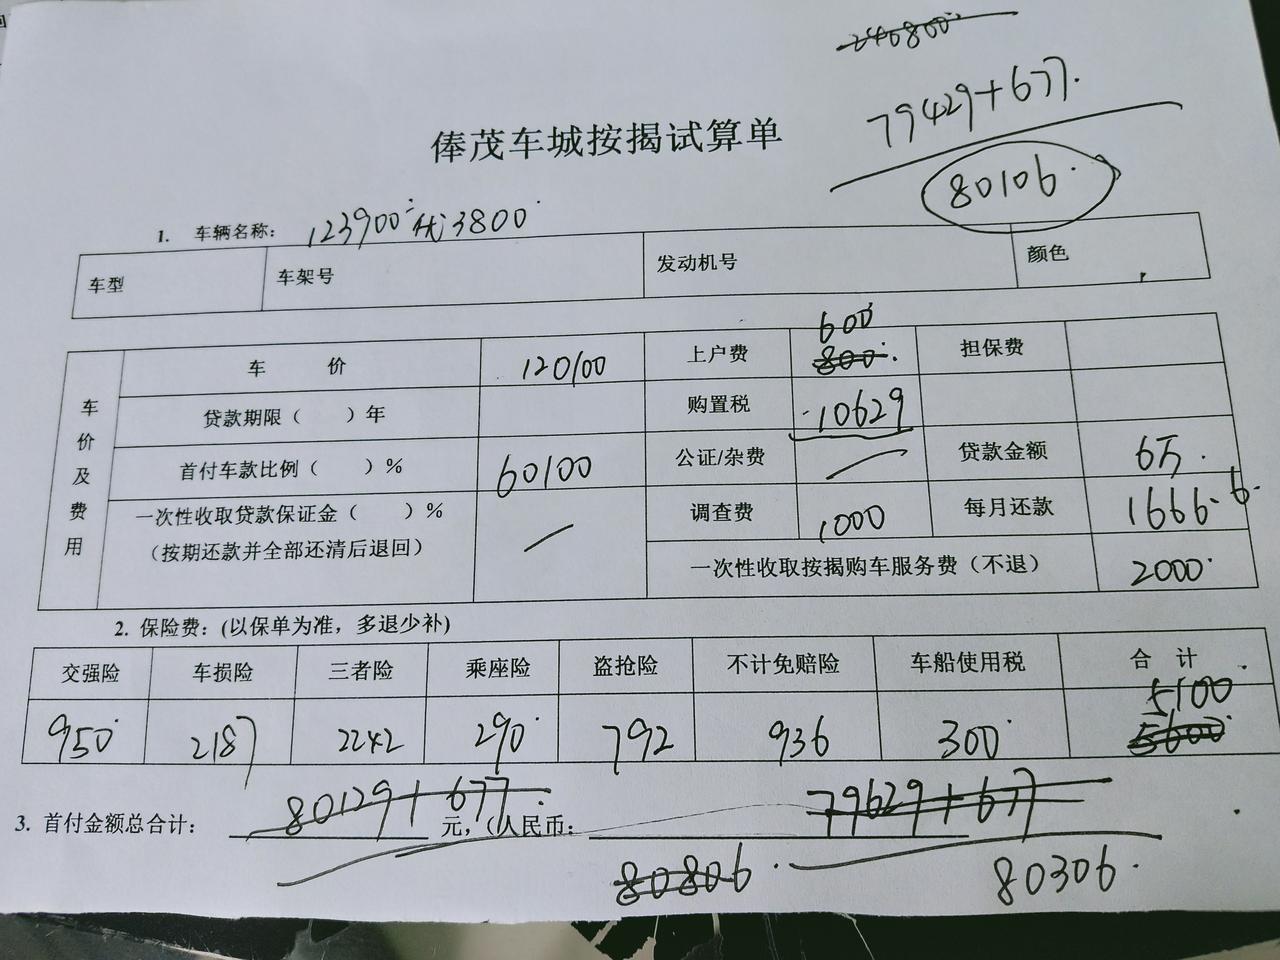 240800
79429+677.
俸茂车城按揭试算单
80106.
1. 车辆名称: 123900 优3800
车型 车架号 发动机号 颜色
车价及费用
车 价 120100 上户费 600 800 担保费
贷款期限( )年 购置税 10629
首付车款比例( )% 60100 公证/杂费 贷款金额 6万.
一次性收取贷款保证金( )% 调查费 1000 每月还款 1666.6.
(按期还款并全部还清后退回) 一次性收取按揭购车服务费(不退) 2000
2. 保险费: (以保单为准, 多退少补)
交强险 车损险 三者险 乘座险 盗抢险 不计免赔险 车船使用税 合 计
5100
950 2187 2242 290 792 936 300 5600
3. 首付金额总合计: 80129+677. 元, (人民币: 79629+677
80806. 80306.